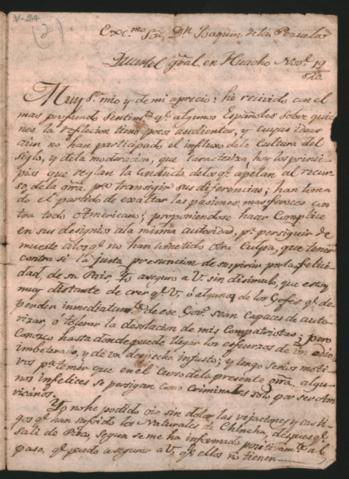 V-24
Exc.mo Sor. Dn. Joaquin de la Pezuela
Quartel gral. en Huacho Nov.e 19/820
Muy Sr. mio y de mi aprecio: he recivido con el
mas profundo Sentim.to q.e algunos Españoles sobre quie
nes la reflexion tiene poco ascendiente, y cuyas ideas
aun no han participado el influxo de la Cultura del
Siglo, y de la moderacion, que caracteriza hoy los princi
pios que reglan la conducta de los q.e apelan al recur
so de la grra. pra. transigir sus diferencias; han toma
do el partido de exaltar las pasiones mas feroces con
tra todo Americano; proponiendose hacer Complice
en sus designios a la misma autoridad, pa. perseguir de
muerte a los q.e no han cometido otra Culpa, que tener
contra si la justa presuncion de suspirar por la felici
dad de su Pais. Yo aseguro a V. sin disimulo, que estoy
muy distante de creer q.e V. ó alguno de los Gefes q.e de
penden inmediatam.te de ese Gov.no sean Capaces de auto
rizar, ó tolerar la desolacion de mis Compatriotas; pero
Conozco hasta donde puede llegar los esfuerzos de un odio
imbeterado, y de un despecho injusto; y tengo serios moti
vos pa. temer que en el curso de la presente grra. algu
nos infelices se persigan como Criminales solo por ser Ame
ricanos.
Yo no he podido oir sin dolor las vejaciones y casti
gos q.e han sufrido los Naturales de Chincha, despues q.e
sali de Pisco, segun se me ha informado positivam.te al
paso, q.e puedo asegurar a V. q.e ellos no tienen